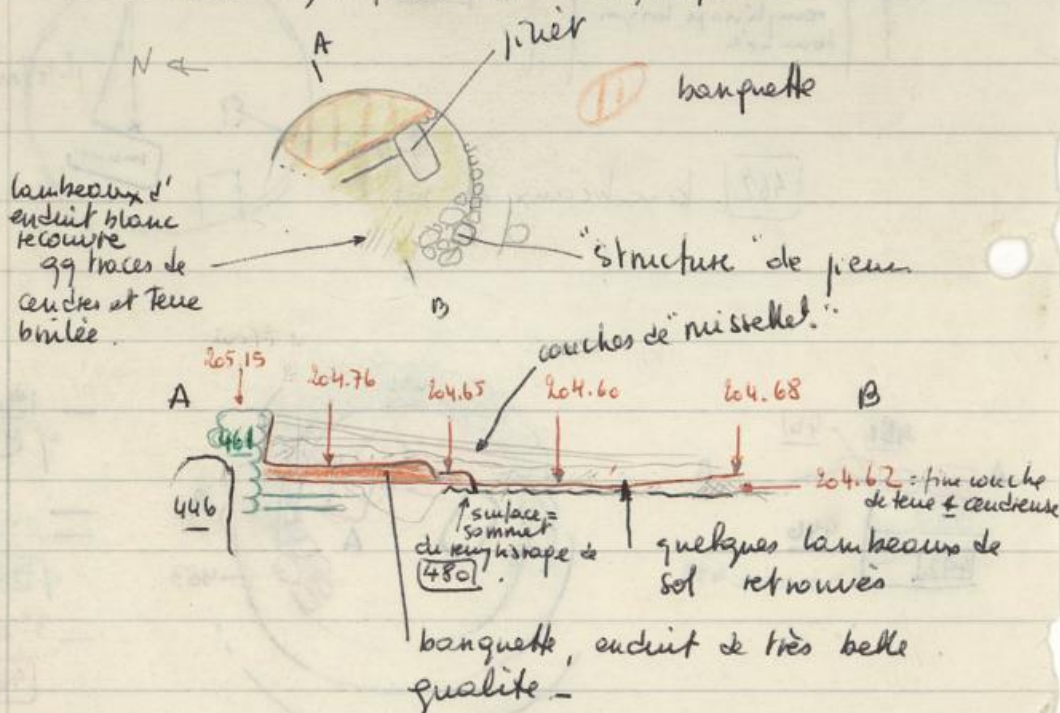 A
N
banquette
lambeaux d'
enduit blanc
recouvre
qq traces de
cendres et terre
brûlée.
"structure" de pierre
B
couches de "ruissellet."
205.15
204.76
204.65
204.60
204.68
A
B
461
446
204.62 : fine couche
de terre ± cendreuse
surface =
sommet
du remplissage de
480
quelques lambeaux de
sol retrouvés
banquette, enduit de très belle
qualité -